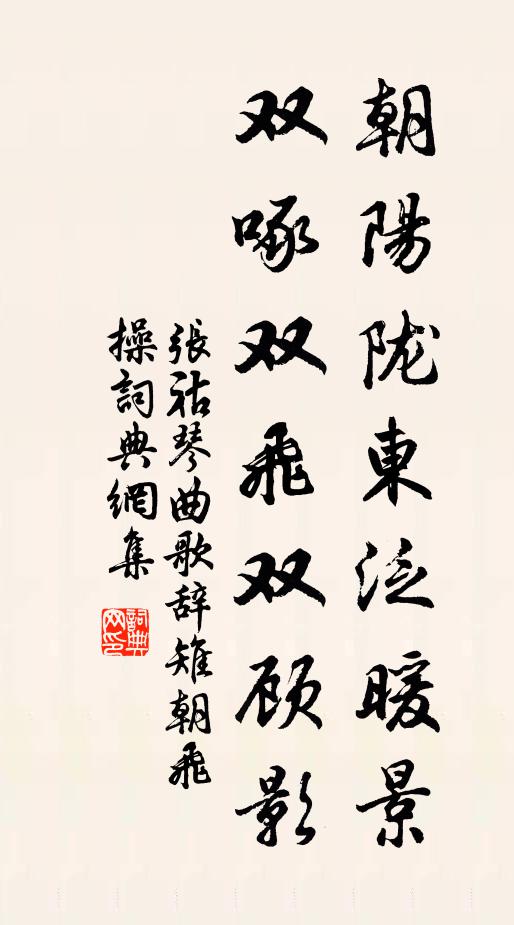 朝陽陇東泛暖景
双啄双飛双顾影
張祜琴曲歌辞雉朝飛
操詞典網集
詞典網印